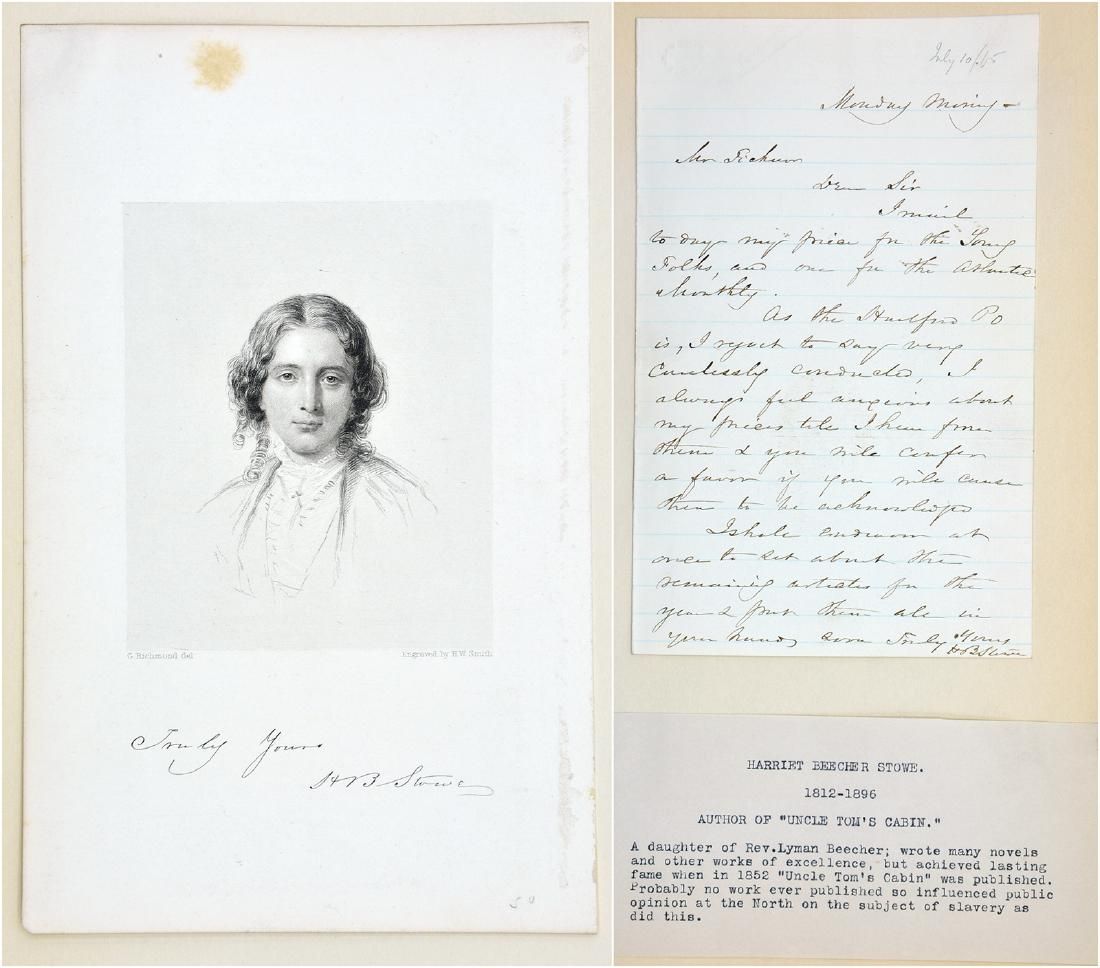 G. Richmond del
Engraved by H.W. Smith
Truly Yours
HB Stowe
50
July 10/65
Monday Morning –
Mr Ticknor
Dear Sir
I mail
to day my piece for the Young
Folks, and one for the Atlantic
Monthly.
As the Hartford PO
is, I regret to say very
carelessly conducted, I
always feel anxious about
my pieces till I hear from
them & you will confer
a favor if you will cause
them to be acknowledged
I shall endeavor at
once to set about the
remaining articles for the
year & put them all in
your hands soon Truly Yours
HB Stowe
HARRIET BEECHER STOWE.
1812-1896
AUTHOR OF "UNCLE TOM'S CABIN."
A daughter of Rev.Lyman Beecher; wrote many novels
and other works of excellence, but achieved lasting
fame when in 1852 "Uncle Tom's Cabin" was published.
Probably no work ever published so influenced public
opinion at the North on the subject of slavery as
did this.